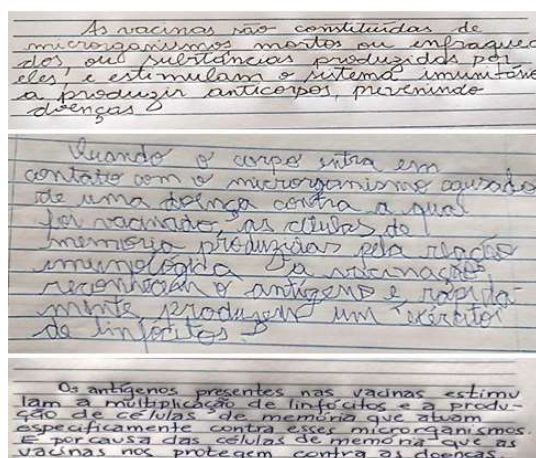 As vacinas são constituídas de
microrganismos mortos ou enfraqueci
dos ou substâncias produzidas por
eles, e estimulam o sistema imunitário
a produzir anticorpos, prevenindo
doenças
Quando o corpo entra em
contato com o microrganismo causador
de uma doença contra a qual
foi vacinado, as células de
memória produzidas pela reação
imunológica à vacinação,
reconhecem o antígeno e rápida-
mente produzem um exército
de linfócitos.
Os antígenos presentes nas vacinas estimu
lam a multiplicação de linfócitos e a produ-
ção de células de memória que atuam
especificamente contra esses microrganismos.
É por causa das células de memória que as
vacinas nos protegem contra as doenças.